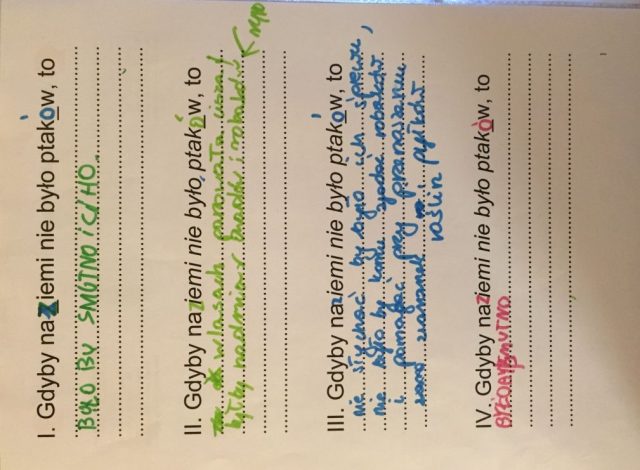 I. Gdyby na ziemi nie było ptaków, to
BYŁO BY SMUTNO i CIHO.
II. Gdyby na ziemi nie było ptaków, to
w lasach panowała cisza i
byłby nadmiar owadów i robaków
III. Gdyby na ziemi nie było ptaków, to
nie słychać by było ich śpiewu,
nie było by komu zjadać robaków
i pomagać przy przenoszeniu
ziarenek i pyłków
roślin
IV. Gdyby na ziemi nie było ptaków, to
BYŁOBYSMUTNO